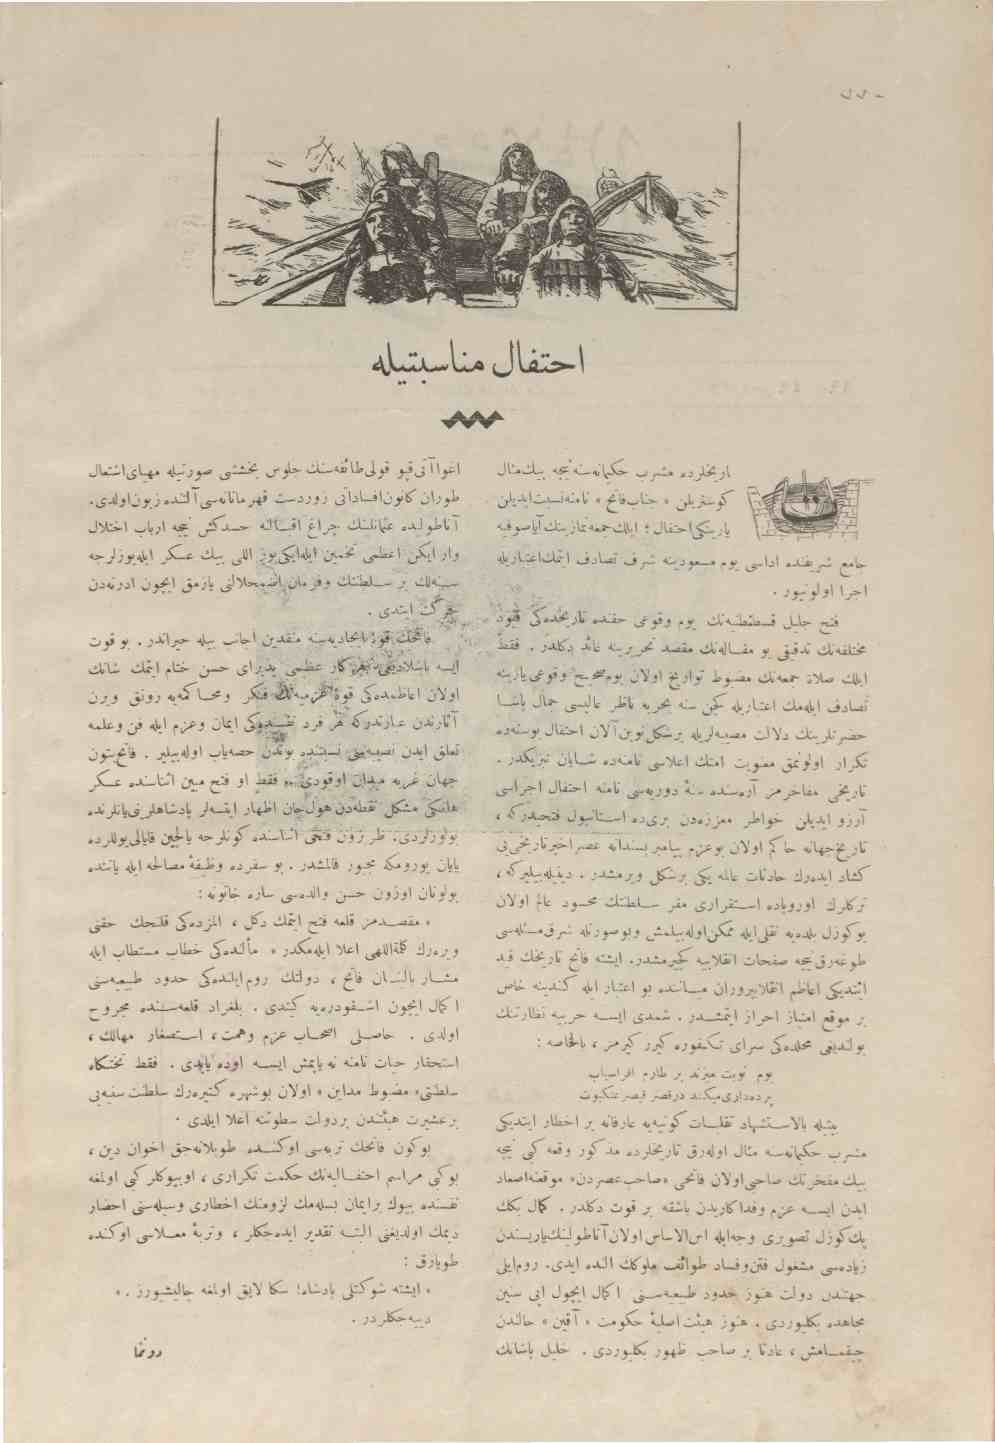 احتفال مناسبتيله
تاريخلرده مشرب حكيمانه‌سنه نيجه بيك مثال
كوستريلن « جناب فاتح » نامنه نسبت ايديلن
يارينكى احتفال ؛ ايلك جمعه نمازينك آياصوفيه
جامع شريفنده اداسى يوم مسعودينه شرف تصادف ايتمك اعتباريله
اجرا اولونيور .
فتح جليل قسطنطينيه‌نك يوم وقوعى حقنده تاريخده‌كى قيود
مختلفه‌نك تدقيقى بو مقاله‌نك مقصد تحريرينه عائد دكلدر . فقط
ايلك صلاة جمعه‌نك مضبوط تواريخ اولان يوم صحيح وقوعى يارينه
تصادف ايله‌مك اعتباريله كچن سنه بحريه ناظر عاليسى جمال پاشا
حضرتلرينك دلالت مصيبه‌لريله برشكل نوين آلان احتفال بوسنه‌ده
تكرار اولونمق معنويت امتك اعلاسى نامنه‌ده شايان تبريكدر .
تاريخى مفاخرمز آره‌سنده سنهٔ دوريه‌سى نامنه احتفال اجراسى
آرزو ايديلن خواطر معززه‌دن برى‌ده استانبول فتحيدركه ،
تاريخ جهانه حاكم اولان بوعزم پيامبر پسندانه عصر اخير تاريخى‌نى
كشاد ايده‌رك حادثات عالمه يكى برشكل ويرمشدر . دينيله‌بيليركه ،
تركلرك اوروپاده استقرارى مقر سلطنتك محسود عالم اولان
بوكوزل بلده‌يه نقلى ايله ممكن اوله‌بيلمش وبوصورتله شرق مسئله‌سى
طوغه‌رق نيجه صفحات انقلابيه كچيرمشدر. ايشته فاتح تاريخك قيد
ايتديكى اعاظم انقلاب‌پروران ميانده بو اعتبار ايله كندينه خاص
بر موقع امتياز احراز ايتمشدر . شمدى ايسه حربيه نظارتنك
بولنديغى محلده‌كى سراى تكفوره كيرر كيرمز ، بالخاصه :
بوم نوبت ميزند بر طارم افراسياب
پرده‌دارى ميكند درقصر قيصر عنكبوت
بيتيله بالاستشهاد تقلبات كونيه‌يه عارفانه بر اخطار ايتديكى
مشرب حكيمانه‌سنه مثال اوله‌رق تاريخلرده مذكور وقعه كبى نيجه
بيك مفخرتك صاحبى اولان فاتحى «صاحب عصردن» موقعنه اصعاد
ايدن ايسه عزم وفداكاريدن باشقه بر قوت دكلدر . كمال بكك
پك كوزل تصويرى وجه‌ايله اس‌الاساس اولان آناطولينك ياريسندن
زياده‌سى مشغول فتن وفساد طوائف ملوكك النده ايدى. روم‌ايلى
جهتندن دولت هنوز حدود طبيعيه‌سنى اكمال ايچون ايى سنين
مجاهده بكليوردى . هنوز هيئت اصليهٔ حكومت « آقين » حالندن
چيقمامش ، عادتا بر صاحب ظهور بكليوردى . خليل پاشانك
اغوا آتى قپو قولى طائفه‌سنك جلوس بخششى صورتيله مهياى اشتعال
طوران كانون افساداتى زوردست قهرمانانه‌سى آلتنده زبون اولدى.
آناطوليده عثمانلينك چراغ اقبالنه حسدكش نيجه ارباب اختلال
وار ايكن اعظمى تخمين ايله ايكى يوز اللى بيك عسكر ايله يوزلرجه
سنه‌لك بر سلطنتك وفرمان اضمحلالنى يازمق ايچون ادرنه‌دن
حركت ايتدى .
فاتحك قوهٔ ايجاديه‌سنه منقدين اجانب بيله حيراندر . بو قوت
ايسه باشلاديغى هر كار عظيمى پذيراى حسن ختام ايتمك شانك
اولان اعاظمده‌كى قوهٔ عزميه‌نك فكر ومحاكمه‌يه رونق ويرن
آثارندن عبارتدركه هر فرد نفسنده‌كى ايمان وعزم ايله فن وعلمه
تعلق ايدن نصيبه‌سى نسبتنده بوندن حصه‌ياب اوله‌بيلير . فاتح بتون
جهان غربه ميدان اوقودى .. فقط او فتح مبين اثناسنده عسكر
هانكى مشكل نقطه‌دن هول جان اظهار ايتسه‌لر پادشاهلرنى يانلرنده
بولورلردى. طربزون فتحى اثناسنده كونلرجه بالچين قايالى يوللرده
يايان يورومكه مجبور قالمشدر . بو سفرده وظيفهٔ مصالحه ايله ياننده
بولونان اوزون حسن والده‌سى ساره خاتونه :
« مقصدمز قلعه فتح ايتمك دكل ، المزده‌كى قلنجك حقنى
ويره‌رك كلمة‌اللهى اعلا ايله‌مكدر » مألنده‌كى خطاب مستطاب ايله
مشار بالبنان فاتح ، دولتك روم ايلنده‌كى حدود طبيعيه‌سنى
اكمال ايچون اشقودره‌يه كيتدى . بلغراد قلعه‌سنده مجروح
اولدى . حاصلى اصحاب عزم وهمت ، استصغار مهالك ،
استحقار حيات نامنه نه ياپمش ايسه اوده ياپدى . فقط تختكاه
سلطنتى « مضبوط مداين » اولان بوشهره كتيره‌رك سلطنت سنيه‌يى
برعشيرت هيئتندن بردولت سطوتنه اعلا ايلدى .
بوكون فاتحك تربه‌سى اوكنده طوپلانه‌جق اخوان دين ،
بوكبى مراسم احتفاليه‌نك حكمت تكرارى ، او بيوكلر كبى اولمغه
نفسنده بيوك برايمان بسله‌مك لزومنك اخطارى وسيله‌سنى احضار
ديمك اولديغنى البته تقدير ايده‌جكلر ، وتربهٔ معلاسى اوكنده
طويارق :
« ايشته شوكتلى پادشاه! سكا لايق اولمغه چاليشيورز . »
دييه‌جكلردر .
دوننما